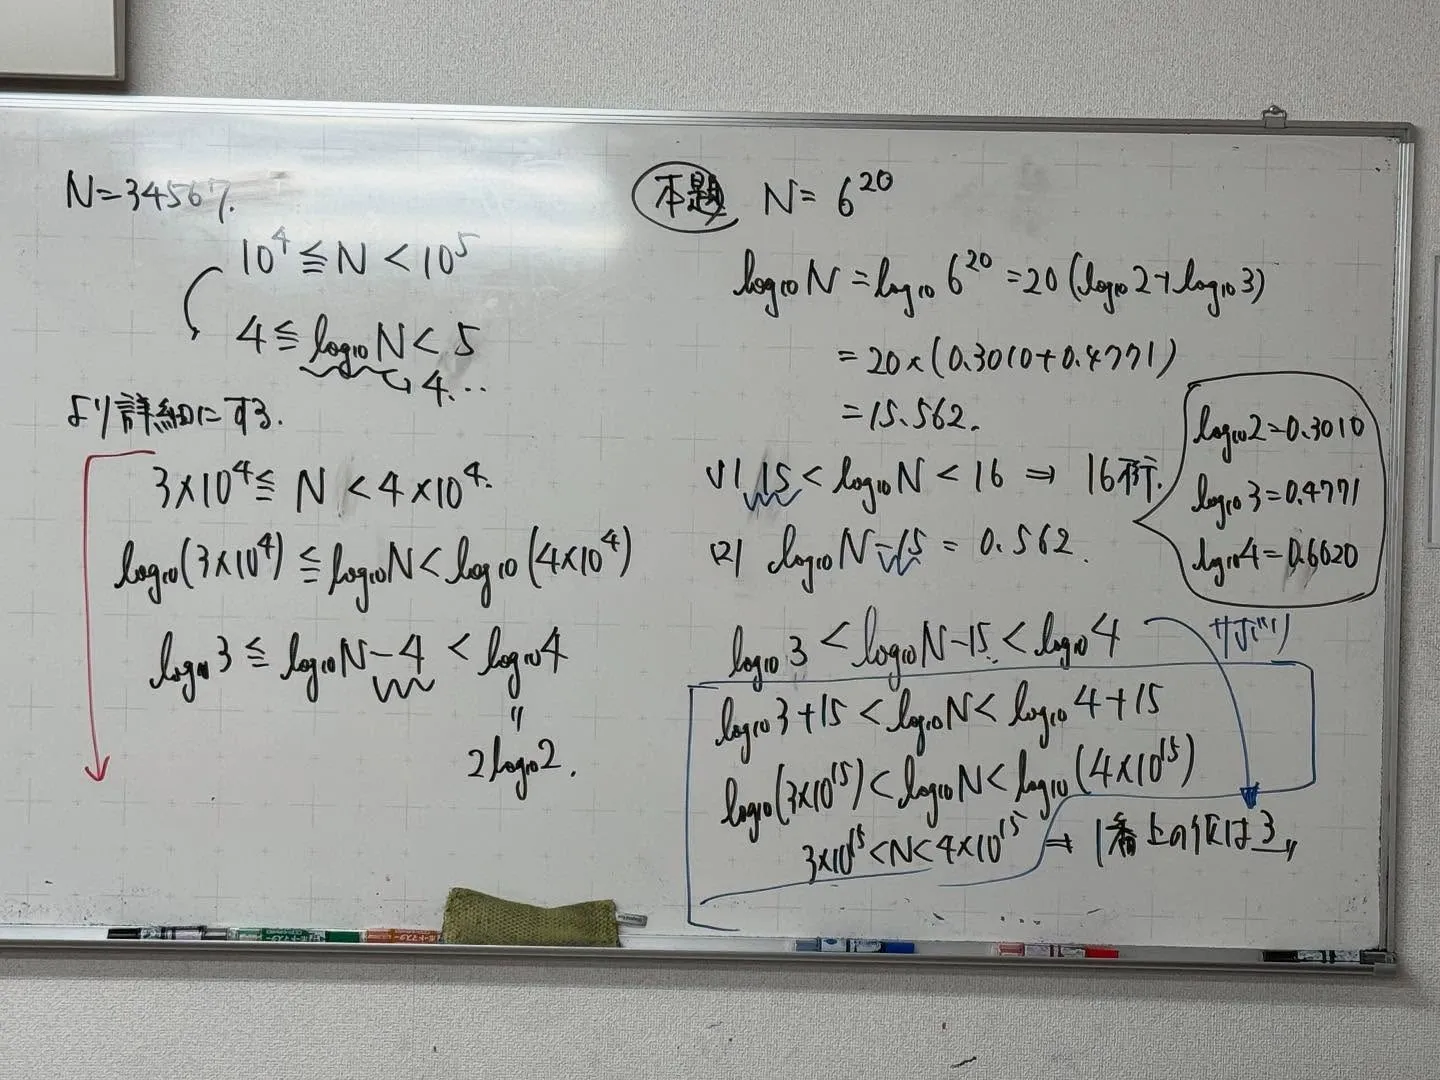 N=34567.
10⁴ ≦ N < 10⁵
4 ≦ log₁₀N < 5
4.…
より詳細にする.
3×10⁴ ≦ N < 4×10⁴.
log₁₀(3×10⁴) ≦ log₁₀N < log₁₀(4×10⁴)
log₁₀3 ≦ log₁₀N-4 < log₁₀4
〃
2log₁₀2.
本題 N = 6²⁰
log₁₀N = log₁₀6²⁰ = 20(log₁₀2+log₁₀3)
= 20×(0.3010+0.4771)
= 15.562.
(1) 15 < log₁₀N < 16 ⇒ 16桁.
(2) log₁₀N-15 = 0.562.
log₁₀2=0.3010
log₁₀3=0.4771
log₁₀4=0.6020
log₁₀3 < log₁₀N-15 < log₁₀4
サボり
log₁₀3+15 < log₁₀N < log₁₀4+15
log₁₀(3×10¹⁵) < log₁₀N < log₁₀(4×10¹⁵)
3×10¹⁵ < N < 4×10¹⁵ ⇒ 1番上の位は3〃